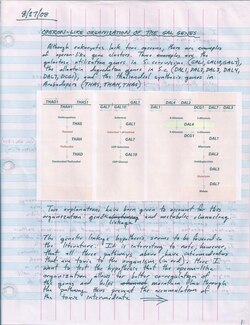 8/27/08
OPERON-LIKE ORGANIZATION OF THE GAL GENES
Although eukaryotes lack true operons, there are examples
of operon-like gene clusters. Three examples are the
galactose utilization genes in S. cerevisiae (GAL1, GAL10, GAL7),
the allantoin degradation genes in S.c. (DAL1, DAL2, DAL3, DAL4,
DAL7, DCG1), and the thalianol synthesis genes in
Arabidopsis (THAS, THAH, THAD)
THAS1 THAD1
THAH1
GAL7 GAL10 GAL1
DAL1 DAL4 DAL2
DCG1 DAL7 DAL3
THAS
Thalianol
THAH
THAD
GAL7
GAL10
DAL4
DAL1
DAL2
DAL3
DAL7
explanations have been given to account for this
organization: and metabolic channeling
linkage
The genetic linkage hypothesis seems to be favored in
the literature. It is interesting to note, however,
that all three pathways above have intermediates
that are toxic to the organisms (in red). Thus I
want to test the hypothesis that the operon-like
organization allows for tight co-regulation of
the genes and helps maintain flux through
the pathway, thus prevent the accumulation of
the toxic intermediate